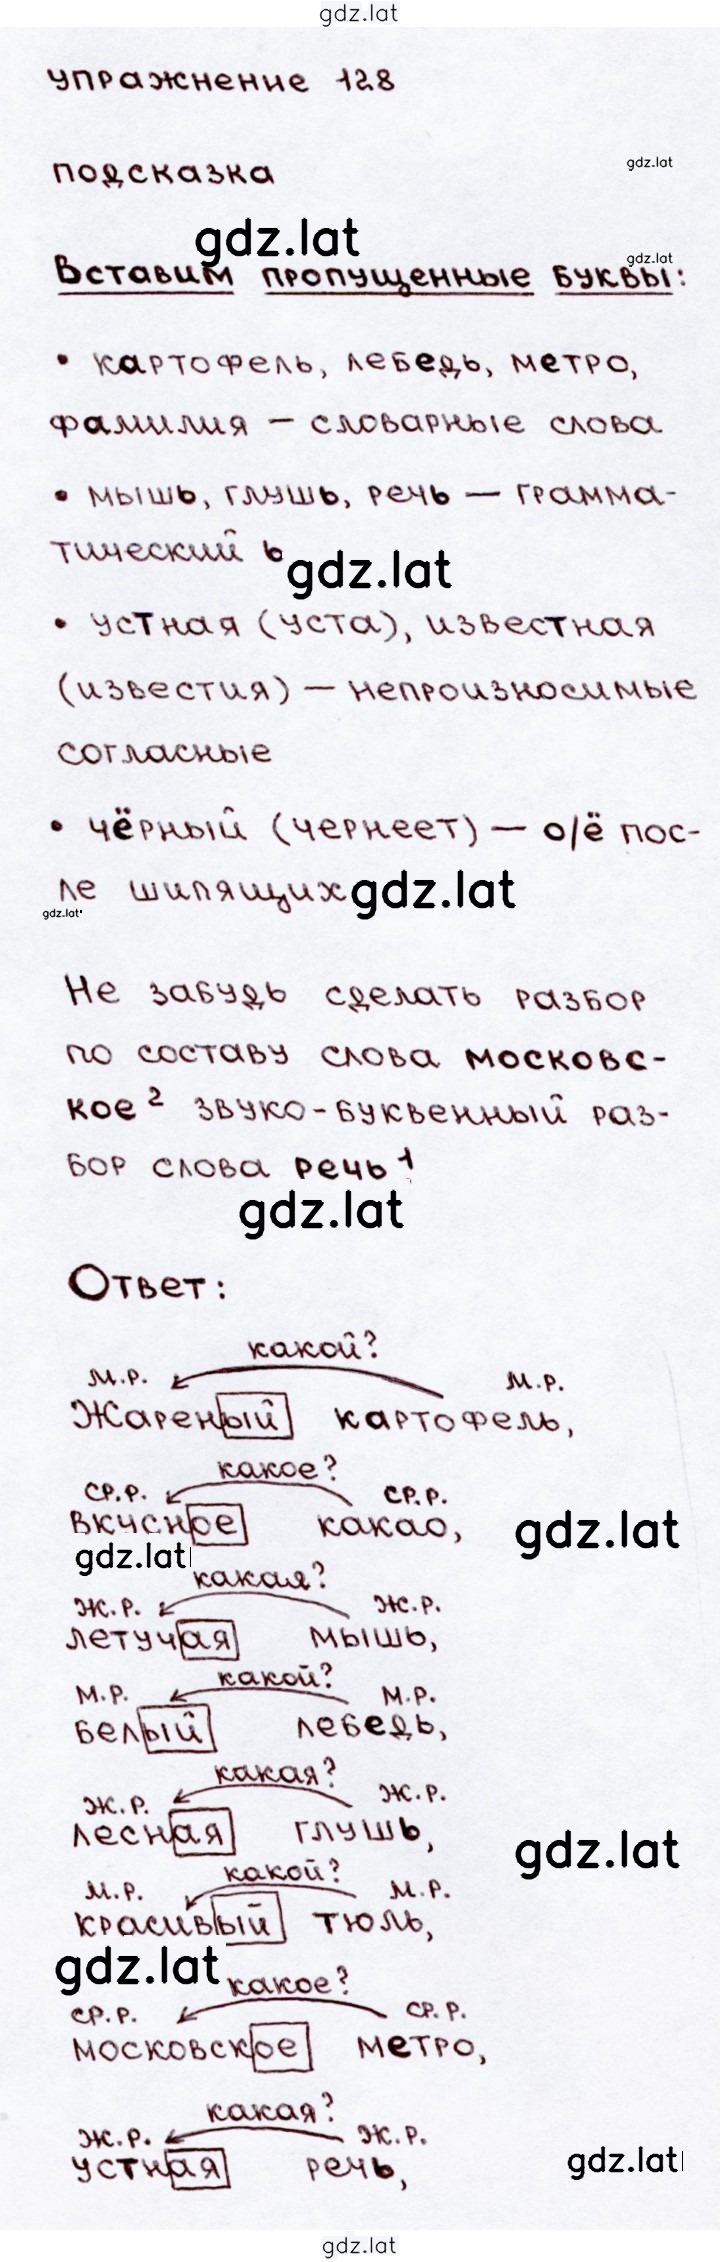 gdz.lat
упражнение 128
подсказка
gdz.lat
gdz.lat
Вставим пропущенные буквы:
gdz.lat
• картофель, лебедь, метро,
фамилия – словарные слова
• мышь, глушь, речь – грамма-
тический ь
gdz.lat
• устная (уста), известная
(известия) – непроизносимые
согласные
• чёрный (чернеет) – о/ё пос-
ле шипящих
gdz.lat
gdz.lat
Не забудь сделать разбор
по составу слова московс-
кое² звуко-буквенный раз-
бор слова речь¹
gdz.lat
Ответ:
какой?
м.р. м.р.
Жареный картофель,
какое?
ср.р. ср.р.
вкусное какао,
gdz.lat
gdz.lat
какая?
ж.р. ж.р.
летучая мышь,
какой?
м.р. м.р.
белый лебедь,
какая?
ж.р. ж.р.
лесная глушь,
gdz.lat
какой?
м.р. м.р.
красивый тюль,
gdz.lat
какое?
ср.р. ср.р.
московское метро,
какая?
ж.р. ж.р.
устная речь,
gdz.lat
gdz.lat